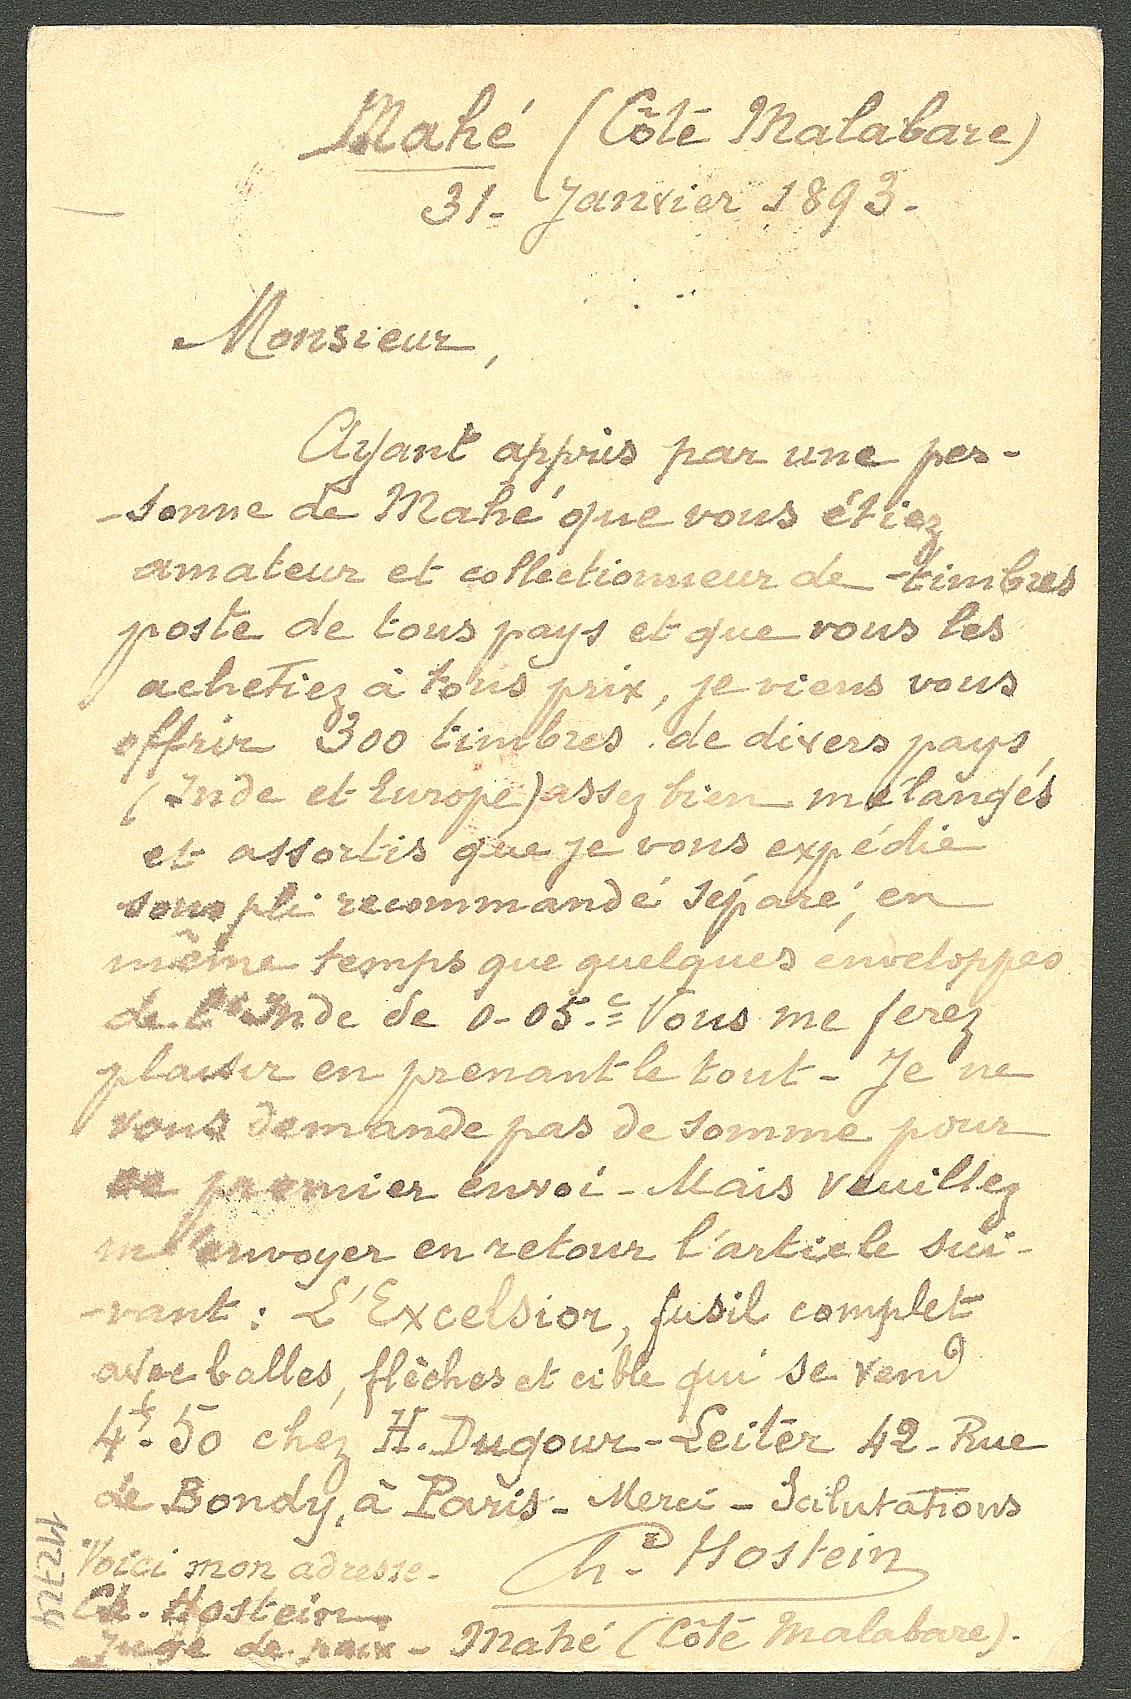 Mahé (Côte Malabare)
31- Janvier 1893.
Monsieur,
Ayant appris par une per-
-sonne de Mahé que vous étiez
amateur et collectionneur de timbres
poste de tous pays et que vous les
achetiez à tous prix, je viens vous
offrir 300 timbres de divers pays
(Inde et Europe) assez bien mélangés
et assortis que je vous expédie
sous pli recommandé séparé, en
même temps que quelques enveloppes
de l'Inde de 0-05.c Vous me ferez
plaisir en prenant le tout - Je ne
vous demande pas de somme pour
ce premier envoi - Mais veuillez
m'envoyer en retour l'article sui-
-vant : L'Excelsior, fusil complet
avec balles, flèches et cible qui se vend
4f. 50 chez H. Dugour-Leiter 42- Rue
de Bondy, à Paris - Merci - Salutations
Voici mon adresse- Ch. Hostein
Ch. Hostein,
Juge de paix - Mahé (Côte Malabare).
14724